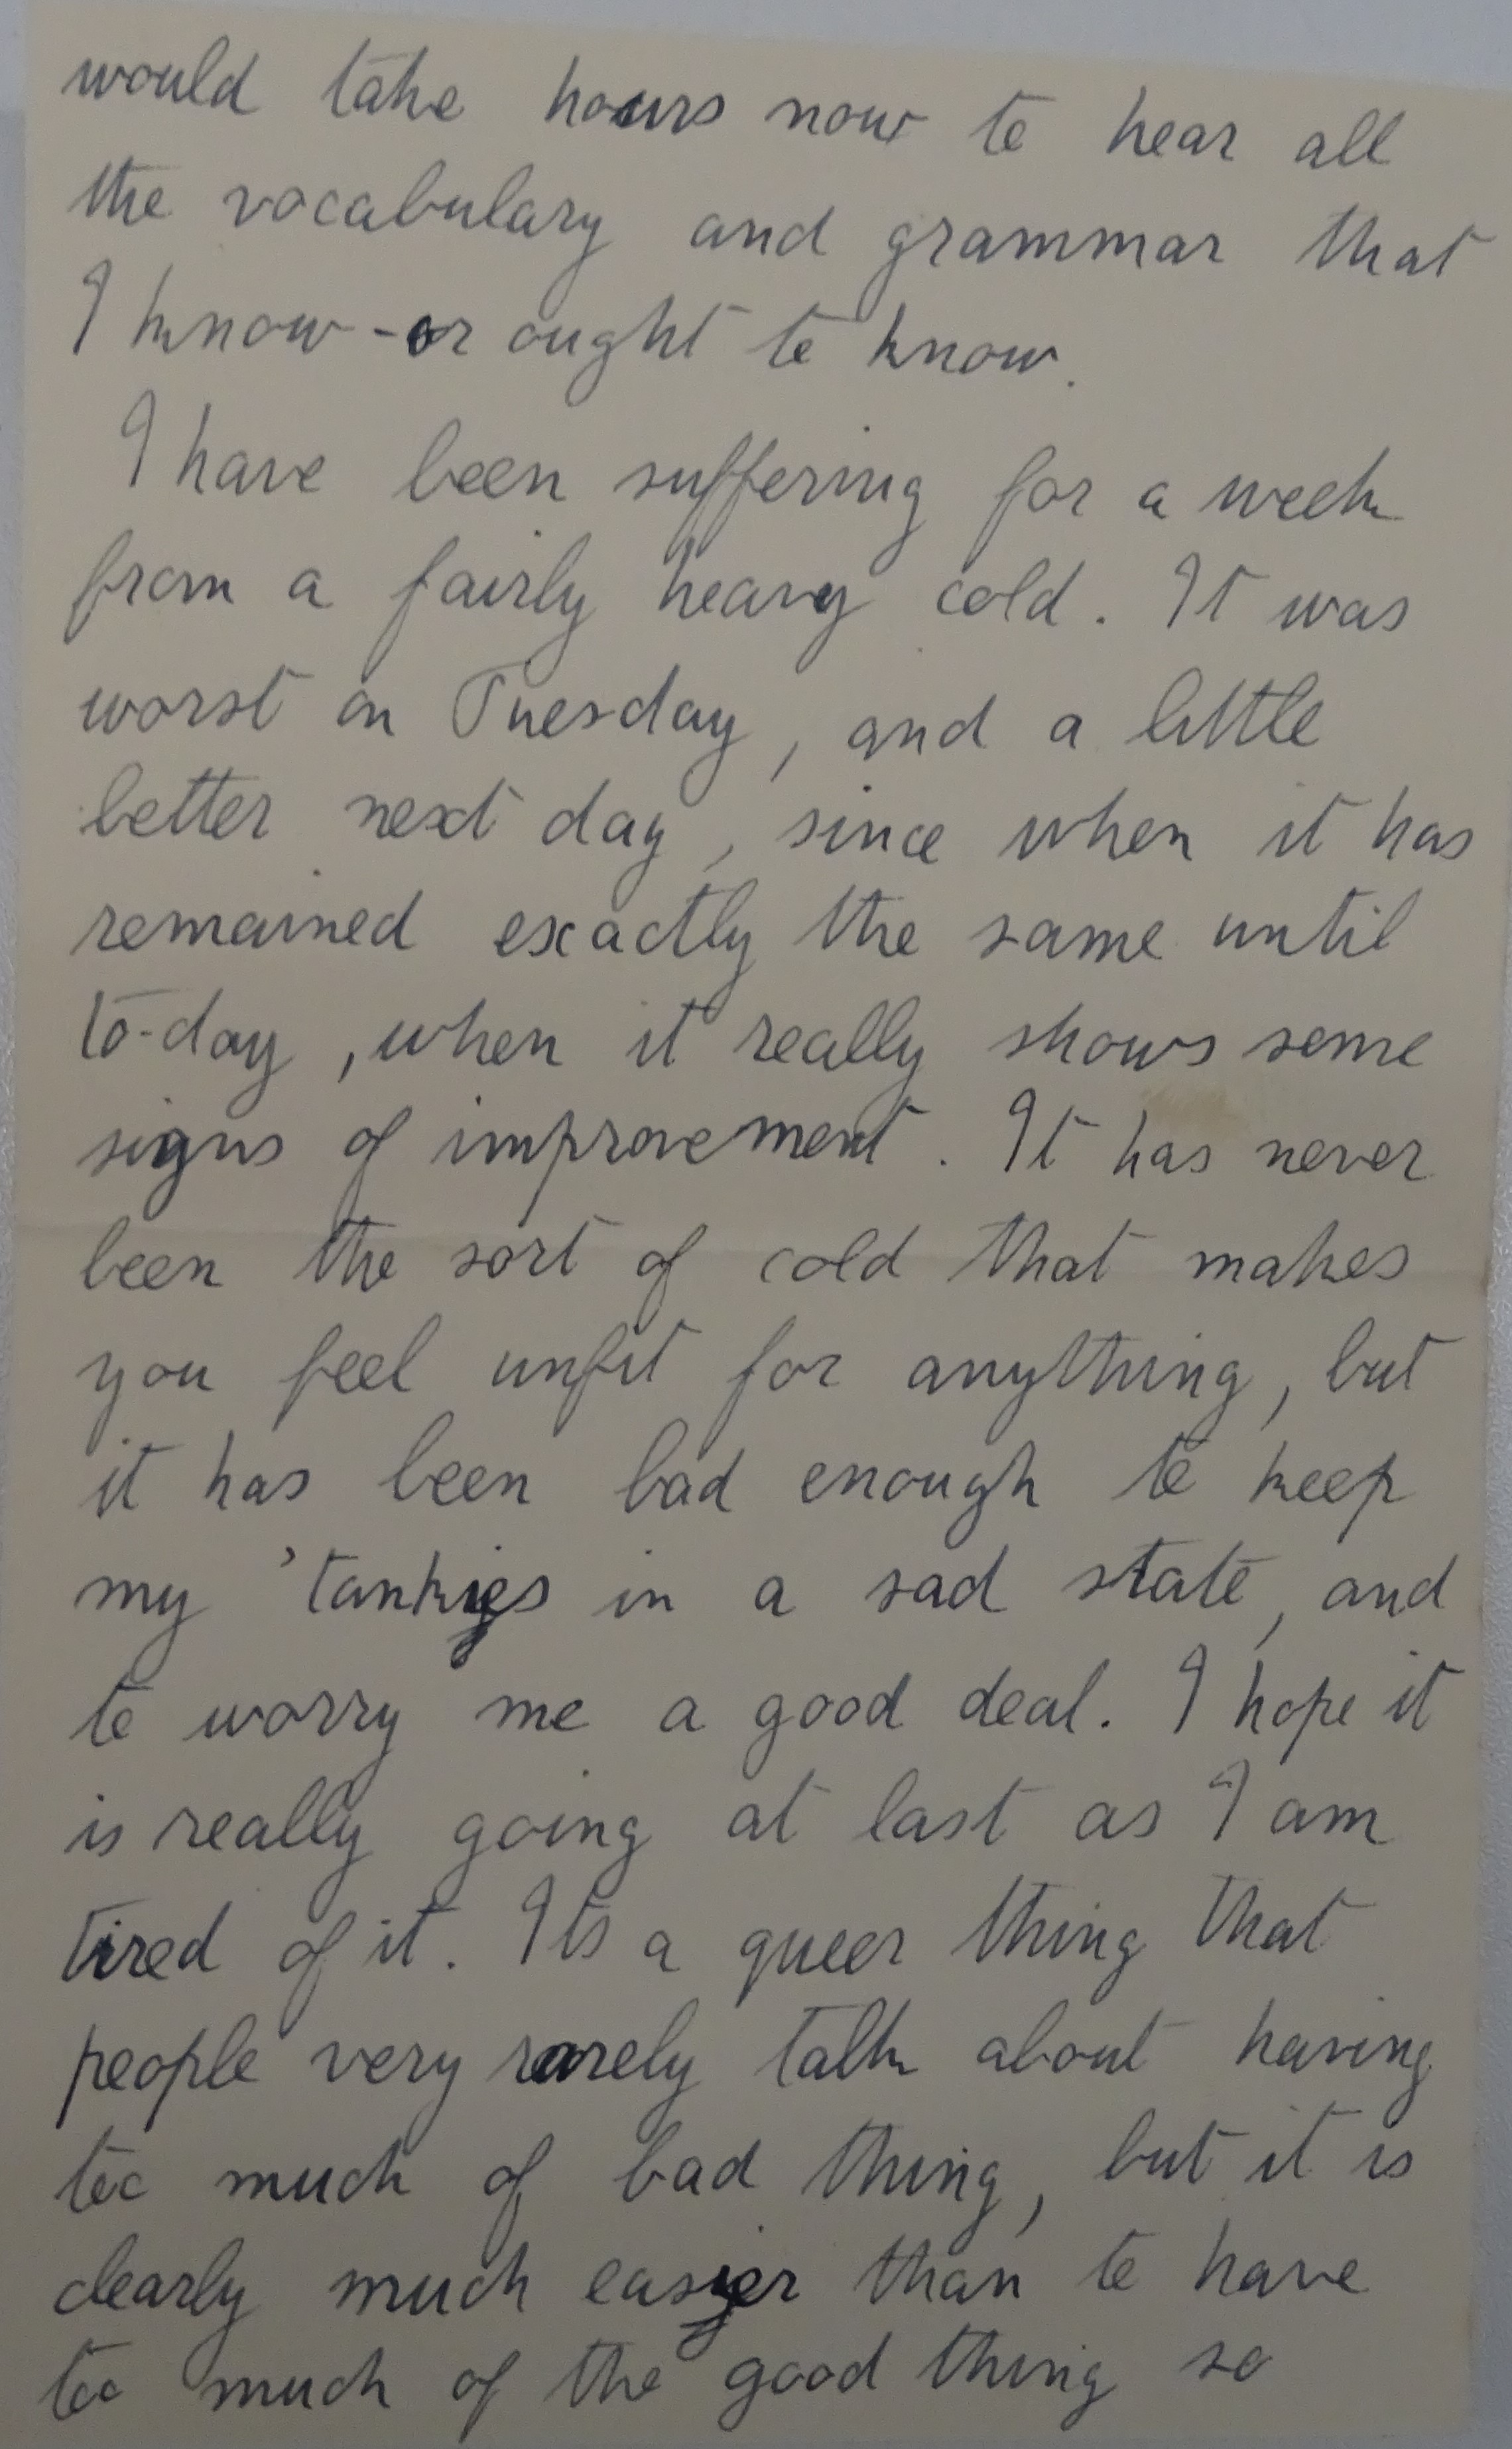 would take hours now to hear all
the vocabulary and grammar that
I know - or ought to know.
I have been suffering for a week
from a fairly heavy cold. It was
worst on Tuesday, and a little
better next day, since when it has
remained exactly the same until
to-day, when it really shows some
signs of improvement. It has never
been the sort of cold that makes
you feel unfit for anything, but
it has been bad enough to keep
my 'tankies in a sad state, and
to worry me a good deal. I hope it
is really going at last as I am
tired of it. Its a queer thing that
people very rarely talk about having
too much of bad thing, but it is
clearly much easier than to have
too much of the good thing so